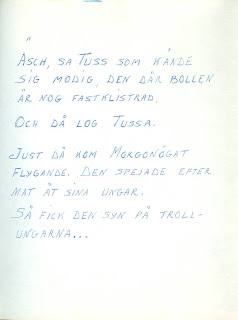 "
ASCH, SA TUSS SOM KÄNDE
SIG MODIG, DEN DÄR BOLLEN
ÄR NOG FASTKLISTRAD.
OCH DÅ LOG TUSSA.
JUST DÅ KOM MORGONÖGAT
FLYGANDE. DEN SPEJADE EFTER
MAT ÅT SINA UNGAR.
SÅ FICK DEN SYN PÅ TROLL-
UNGARNA...